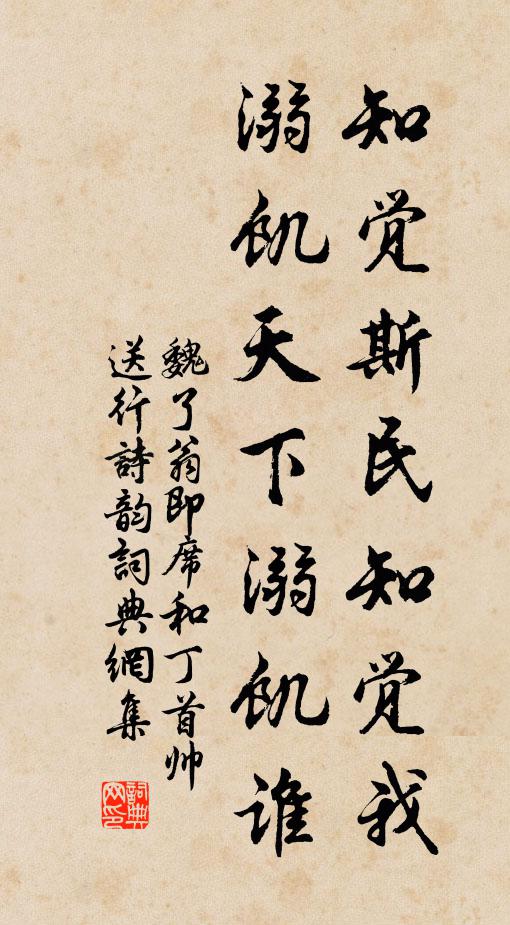 知觉斯民知觉我
溺飢天下溺飢谁
魏了翁即席和丁首帅
送行詩韵詞典網集
詞典网印